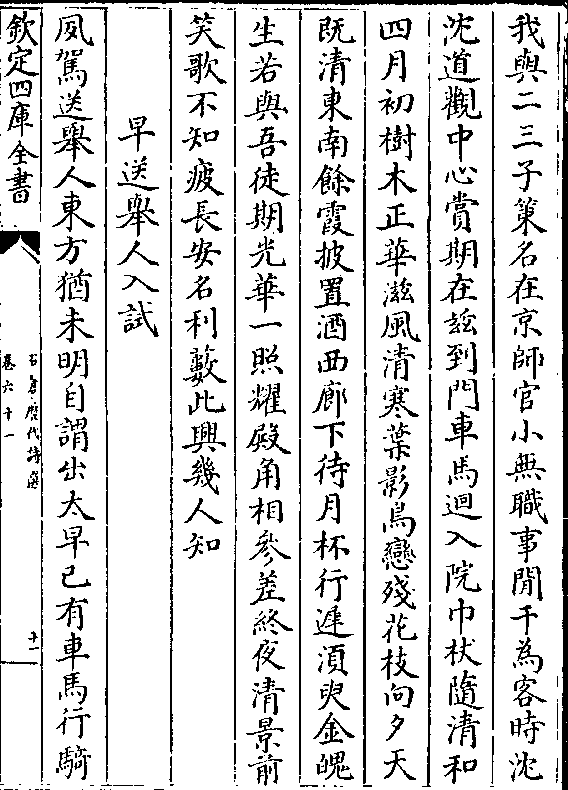 我與二三子䇿名在京師官小無職事閒于為客時沈
沈道觀中心賞期在兹到門車馬迴入院巾杖隨清和
四月初樹木正華滋風清寒葉影鳥戀殘花枝向夕天
既清東南餘霞披置酒西廊下待月杯行遲湏臾金魄
生若與吾徒期光華一照耀殿角相參差終夜清景前
笑歌不知疲長安名利藪此興幾人知
早送舉人入試
夙駕送舉人東方猶未明自謂出太早已有車馬行騎
欽定四庫全書
石倉歷代詩選
卷六十一
十一